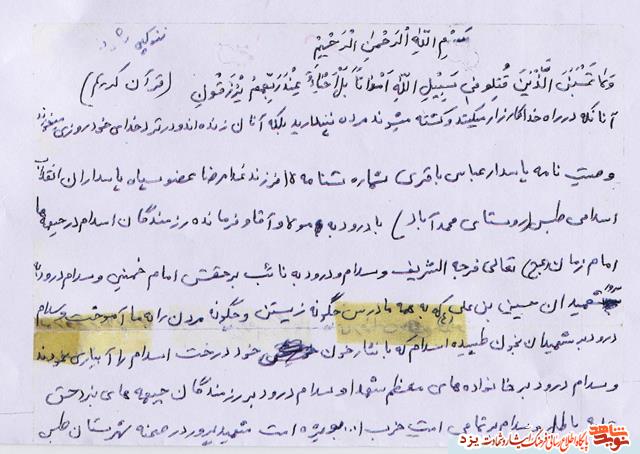 بِسْمِ اللهِ الرَّحْمٰنِ الرَّحِيْمِ
وَلاتَحْسَبَنَّ الَّذْيْنَ قُتِلُو فِى سَبِيْلِ اللهِ اَمْوٰاتاً بَلْ اَحْيٰاءٌ عِنْدَ رَبِّهِمْ يُرْزَقُونِ (قرآن کریم)
آنانکه در راه خدا کارزار میکنند و کشته میشوند مرده نپندارید بلکه آنان زنده اند و در نزد خدای خود روزی میخورند
وصیت نامه پاسدار عباس باقری شماره شناسنامه فرزند غلامرضا عضو سپاه پاسداران انقلاب
اسلامی طبس (روستای محمدآباد) با درود به مولا و آقا و فرمانده رزمندگان اسلام در جبهه ها
امام زمان (عج) تعالی فرجه الشریف و سلام و درود به نائب برحقش امام خمینی و سلام و درود به
شهیدان حسین بن علی (ع) که به همه ما درس چگونه زیستن و چگونه مردن را به ما آموخت و سلام و
درود بر شهیدان بخون طپیده اسلام که با نثار خون خود درخت اسلام را آبیاری نمودند
و سلام و درود بر خانواده های معظم شهدا و سلام و درود بر رزمندگان جبهه های نبرد حق
علیه باطل و سلام بر تمامی امت حزب ا... بویژه امت شهید پرور در صحنه شهرستان طبس
نوید شاهد
پایگاه اطلاع رسانی فرهنگ ایثار و شهادت یزد